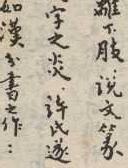 雖丁肢說文篆
字之炎許氏遂
如漢分書之作